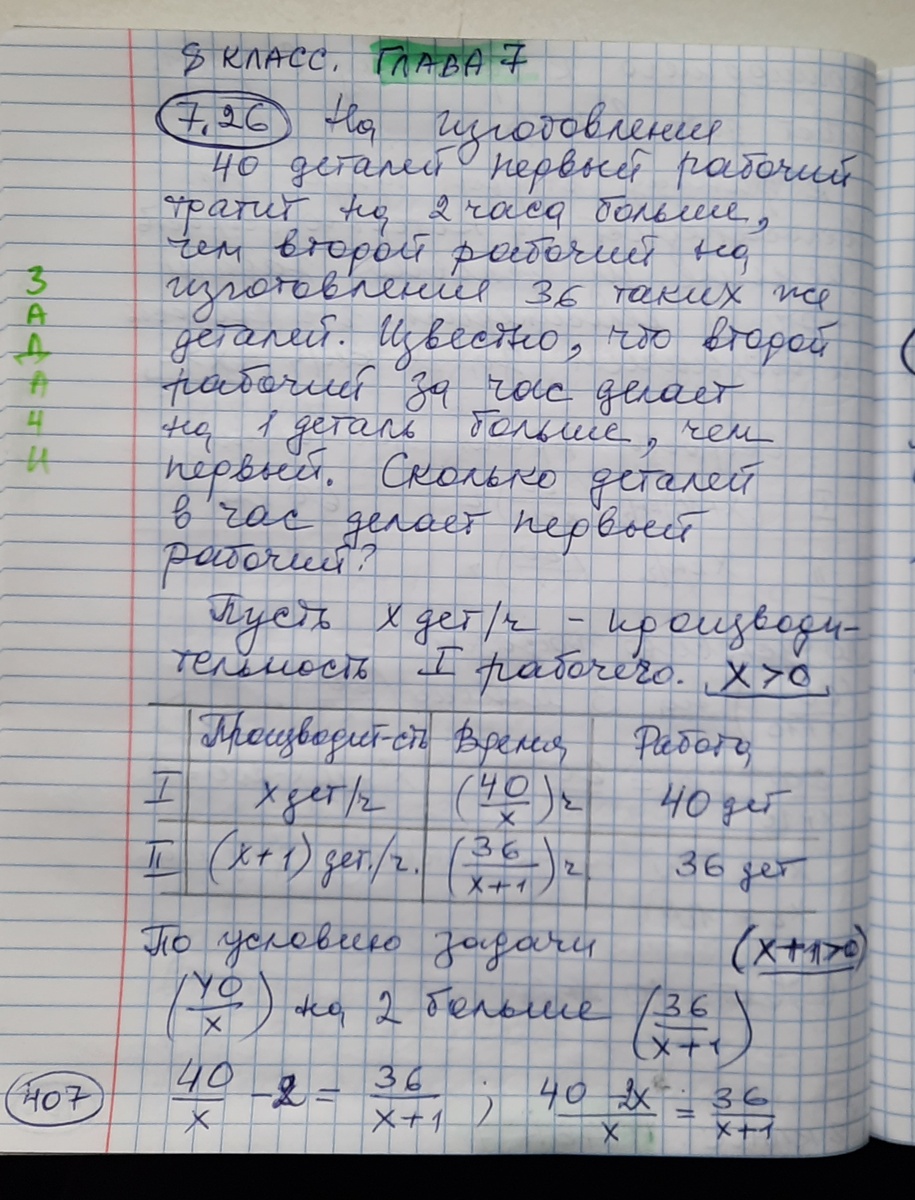 8 КЛАСС. ГЛАВА 7
7.26 На изготовление
40 деталей первый рабочий
тратит на 2 часа больше,
чем второй рабочий на
изготовление 36 таких же
деталей. Известно, что второй
рабочий за час делает
на 1 деталь больше, чем
первый. Сколько деталей
в час делает первый
рабочий?
ЗАДАЧИ
Пусть x дет/ч - производи-
тельность I рабочего. x>0
Производит-сть Время Работа
I x дет/ч (40/x) ч 40 дет
II (x+1) дет./ч. (36/(x+1)) ч. 36 дет
По условию задачи (x+1>0)
(40/x) на 2 больше (36/(x+1))
40/x - 2 = 36/(x+1) ; (40-2x)/x = 36/(x+1)
407